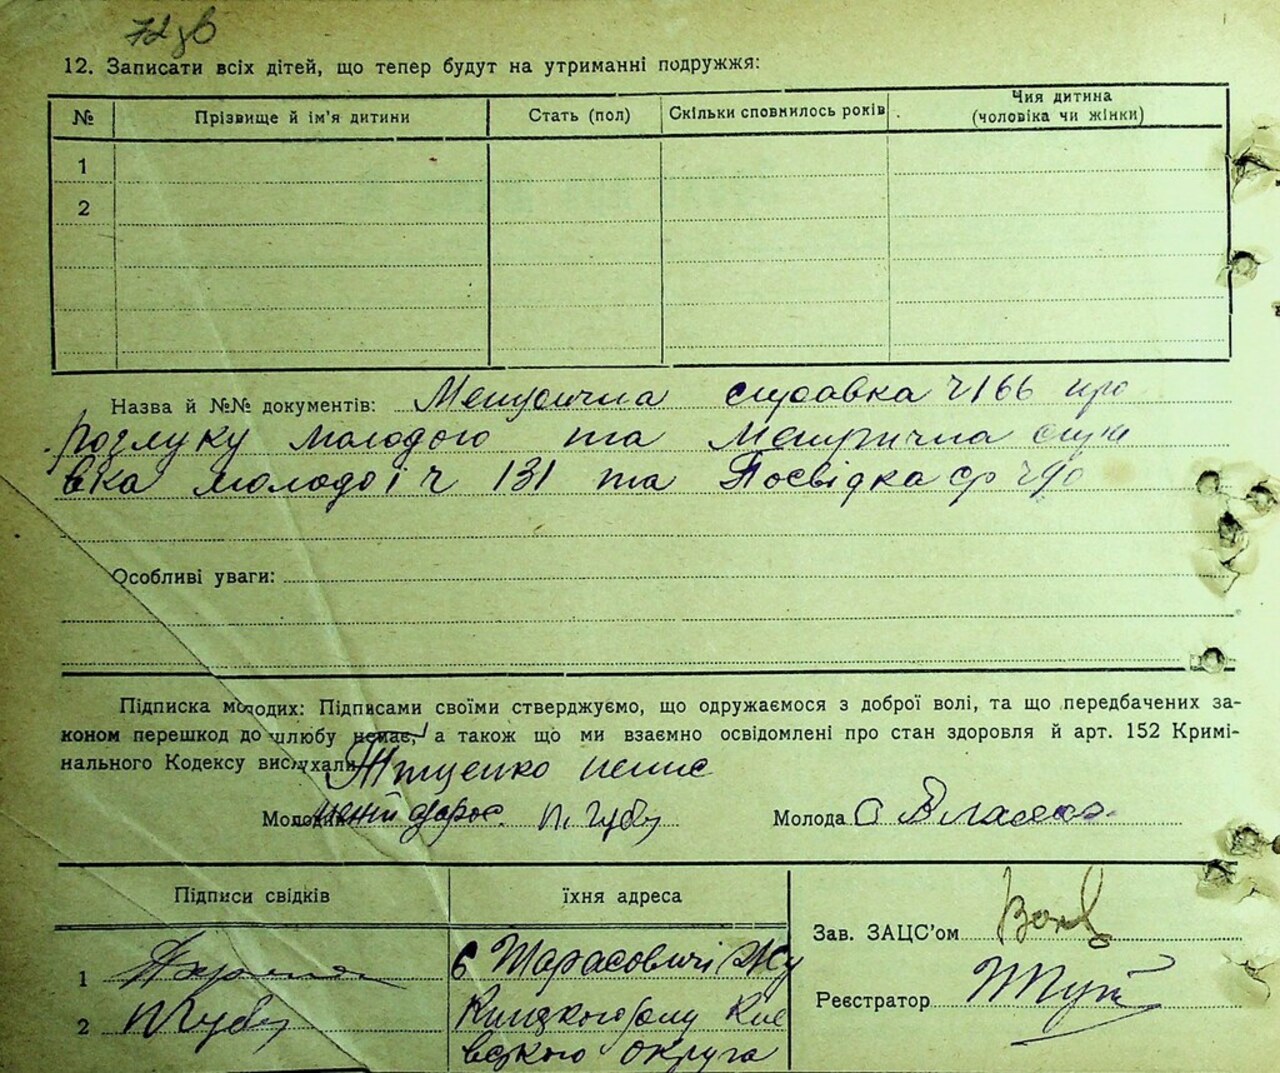 72 зв
12. Записати всіх дітей, що тепер будут на утриманні подружжя:
№ Прізвище й ім'я дитини Стать (пол) Скільки сповнилось років Чия дитина (чоловіка чи жінки)
1
2
Назва й №№ документів: Метрична справка ч 166 про
розлуку молодого та Метрична спра
вка молодоі ч 131 та Посвідка
Особливі уваги:
Підписка молодих: Підписами своїми стверджуємо, що одружаємося з доброї волі, та що передбачених за-
коном перешкод до шлюбу немає, а також що ми взаємно освідомлені про стан здоровля й арт. 152 Кримі-
нального Кодексу вислухали
Молодий П. Губу Молода
Підписи свідків їхня адреса
Зав. ЗАЦС'ом
1 с Тарасовичі Жу
Реєстратор
2 П Губу Кинського ... Киє
вського округа